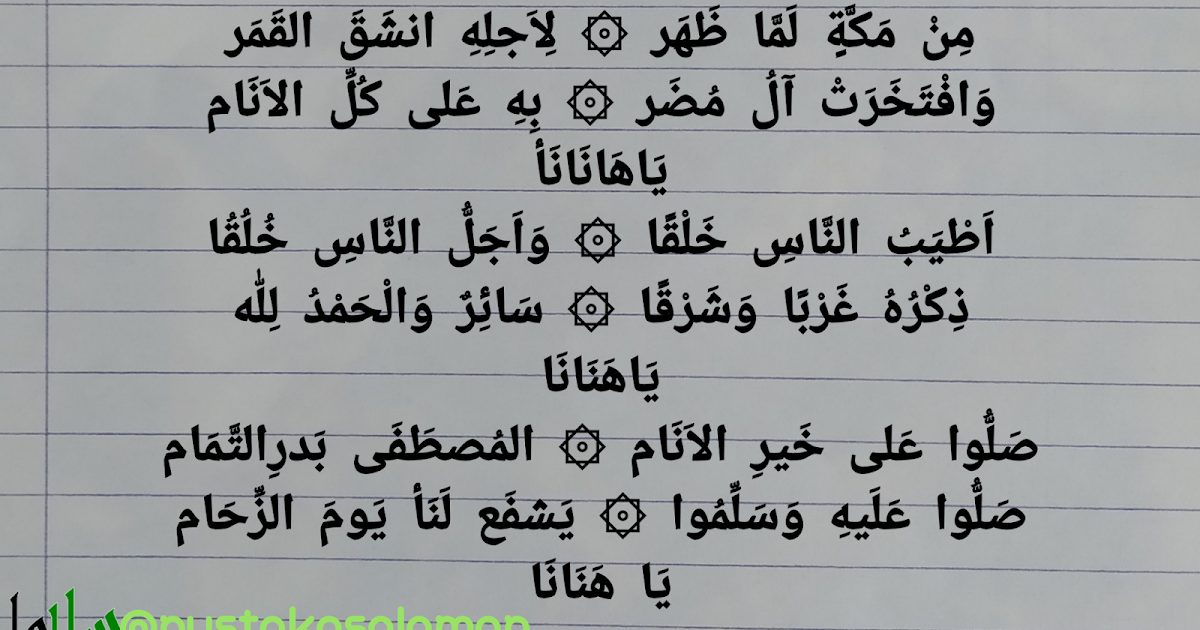 مِنْ مَكَّةٍ لَمَّا ظَهَر ۞ لِاَجلِهِ انشَقَ القَمَر
وَافْتَخَرَتْ آلُ مُضَر ۞ بِهِ عَلى كُلِّ الاَنَام
يَاهَانَانَأ
اَطْيَبُ النَّاسِ خَلْقًا ۞ وَاَجَلُّ النَّاسِ خُلُقُا
ذِكْرُهُ غَرْبًا وَشَرْقًا ۞ سَائِرٌ وَالْحَمْدُ لِلّٰه
يَاهَنَانَا
صَلُّوا عَلى خَيرِ الاَنَام ۞ المُصطَفَى بَدرِالتَّمَام
صَلُّوا عَلَيهِ وَسَلِّمُوا ۞ يَشفَع لَنَأ يَومَ الزِّحَام
يَا هَنَانَا
@pustakasolomon